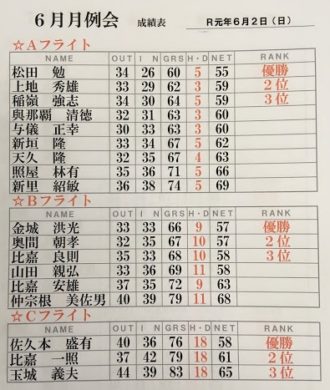 6月月例会 成績表 R元年6月2日(日)
☆Aフライト
NAME OUT IN GRS H·D NET RANK
松田 勉 34 26 60 5 55 優勝
上地 秀雄 33 29 62 3 59 2位
稲嶺 強志 34 30 64 5 59 3位
與那覇 清徳 32 31 63 3 60
与儀 正幸 30 33 63 3 60
新垣 隆 33 34 67 5 62
天久 隆 32 35 67 4 63
照屋 林有 35 36 71 5 66
新里 紹敏 36 38 74 5 69
☆Bフライト
NAME OUT IN GRS H·D NET RANK
金城 洪光 33 33 66 9 57 優勝
奥間 朝孝 32 35 67 10 57 2位
比嘉 良則 35 33 68 10 58 3位
山田 親弘 33 36 69 11 58
比嘉 安雄 37 35 72 9 63
仲宗根 美佐男 40 39 79 11 68
☆Cフライト
NAME OUT IN GRS H·D NET RANK
佐久本 盛有 40 36 76 18 58 優勝
比嘉 一照 37 42 79 18 61 2位
玉城 義夫 44 39 83 18 65 3位